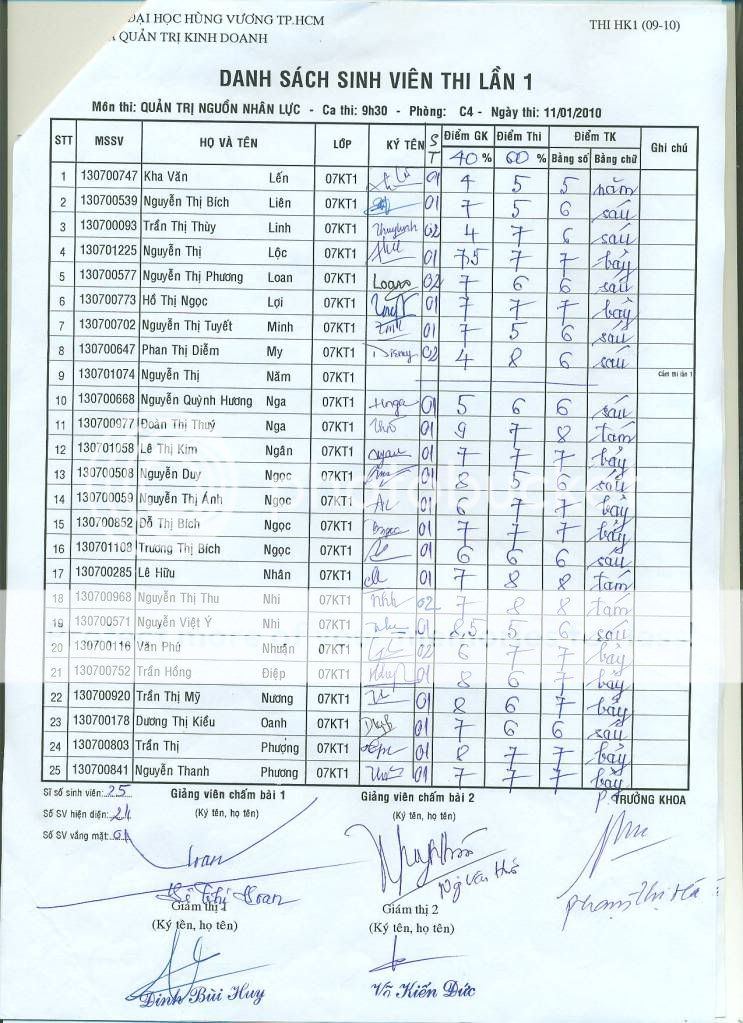 ĐẠI HỌC HÙNG VƯƠNG TP.HCM
THI HK1 (09-10)
QUẢN TRỊ KINH DOANH
DANH SÁCH SINH VIÊN THI LẦN 1
Môn thi: QUẢN TRỊ NGUỒN NHÂN LỰC - Ca thi: 9h30 - Phòng: C4 - Ngày thi: 11/01/2010
STT MSSV HỌ VÀ TÊN LỚP KÝ TÊN S T Điểm GK Điểm Thi Điểm TK Ghi chú
40 % 60 % Bằng số Bằng chữ
1 130700747 Kha Văn Lến 07KT1 01 4 5 5 năm
2 130700539 Nguyễn Thị Bích Liên 07KT1 01 7 5 6 sáu
3 130700093 Trần Thị Thùy Linh 07KT1 Thuylinh 02 4 7 6 sáu
4 130701225 Nguyễn Thị Lộc 07KT1 01 7,5 7 7 bảy
5 130700577 Nguyễn Thị Phương Loan 07KT1 Loan 02 7 6 6 sáu
6 130700773 Hồ Thị Ngọc Lợi 07KT1 01 7 7 7 bảy
7 130700702 Nguyễn Thị Tuyết Minh 07KT1 01 7 5 6 sáu
8 130700647 Phan Thị Diễm My 07KT1 02 4 8 6 sáu
9 130701074 Nguyễn Thị Năm 07KT1 Cấm thi lần 1
10 130700668 Nguyễn Quỳnh Hương Nga 07KT1 01 5 6 6 sáu
11 130700977 Đoàn Thị Thuý Nga 07KT1 01 9 7 8 tám
12 130701058 Lê Thị Kim Ngân 07KT1 01 7 7 7 bảy
13 130700508 Nguyễn Duy Ngọc 07KT1 01 8 5 6 sáu
14 130700059 Nguyễn Thị Ánh Ngọc 07KT1 01 6 7 7 bảy
15 130700852 Đỗ Thị Bích Ngọc 07KT1 Bngọc 01 7 7 7 bảy
16 130701108 Trương Thị Bích Ngọc 07KT1 01 6 6 6 sáu
17 130700285 Lê Hữu Nhân 07KT1 01 7 8 8 tám
18 130700968 Nguyễn Thị Thu Nhi 07KT1 Nhh 02 7 8 8 tám
19 130700571 Nguyễn Việt Ý Nhi 07KT1 01 8,5 5 6 sáu
20 130700116 Văn Phú Nhuận 07KT1 02 6 7 7 bảy
21 130700752 Trần Hồng Điệp 07KT1 01 8 6 7 bảy
22 130700920 Trần Thị Mỹ Nương 07KT1 01 8 6 7 bảy
23 130700178 Dương Thị Kiều Oanh 07KT1 01 7 6 6 sáu
24 130700803 Trần Thị Phượng 07KT1 01 8 7 7 bảy
25 130700841 Nguyễn Thanh Phương 07KT1 01 7 7 7 bảy
Sĩ số sinh viên: 25 Giảng viên chấm bài 1 Giảng viên chấm bài 2 P. TRƯỞNG KHOA
Số SV hiện diện: 24 (Ký tên, họ tên) (Ký tên, họ tên)
Số SV vắng mặt: 01
Loan
Lê Thị Loan
Phạm Thị Hà
Giám thị 1 Giám thị 2
(Ký tên, họ tên) (Ký tên, họ tên)
Đinh Bùi Huy Võ Kiến Đức